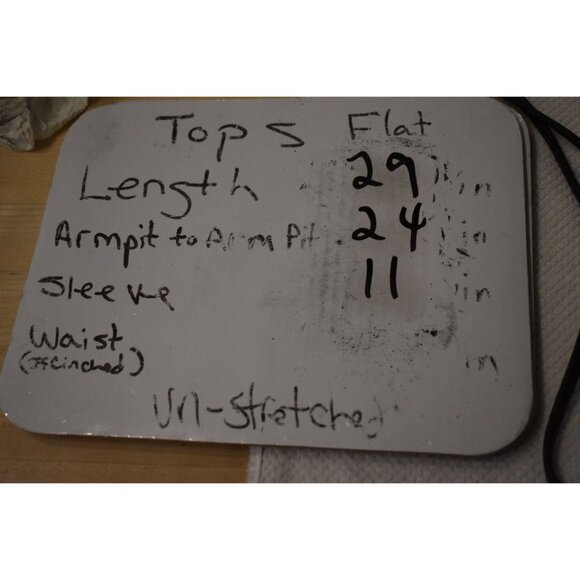 Tops Flat
Length 29 in
Armpit to Arm Pit 24 in
Sleeve 11 in
Waist
(if cinched) in
Un-Stretched